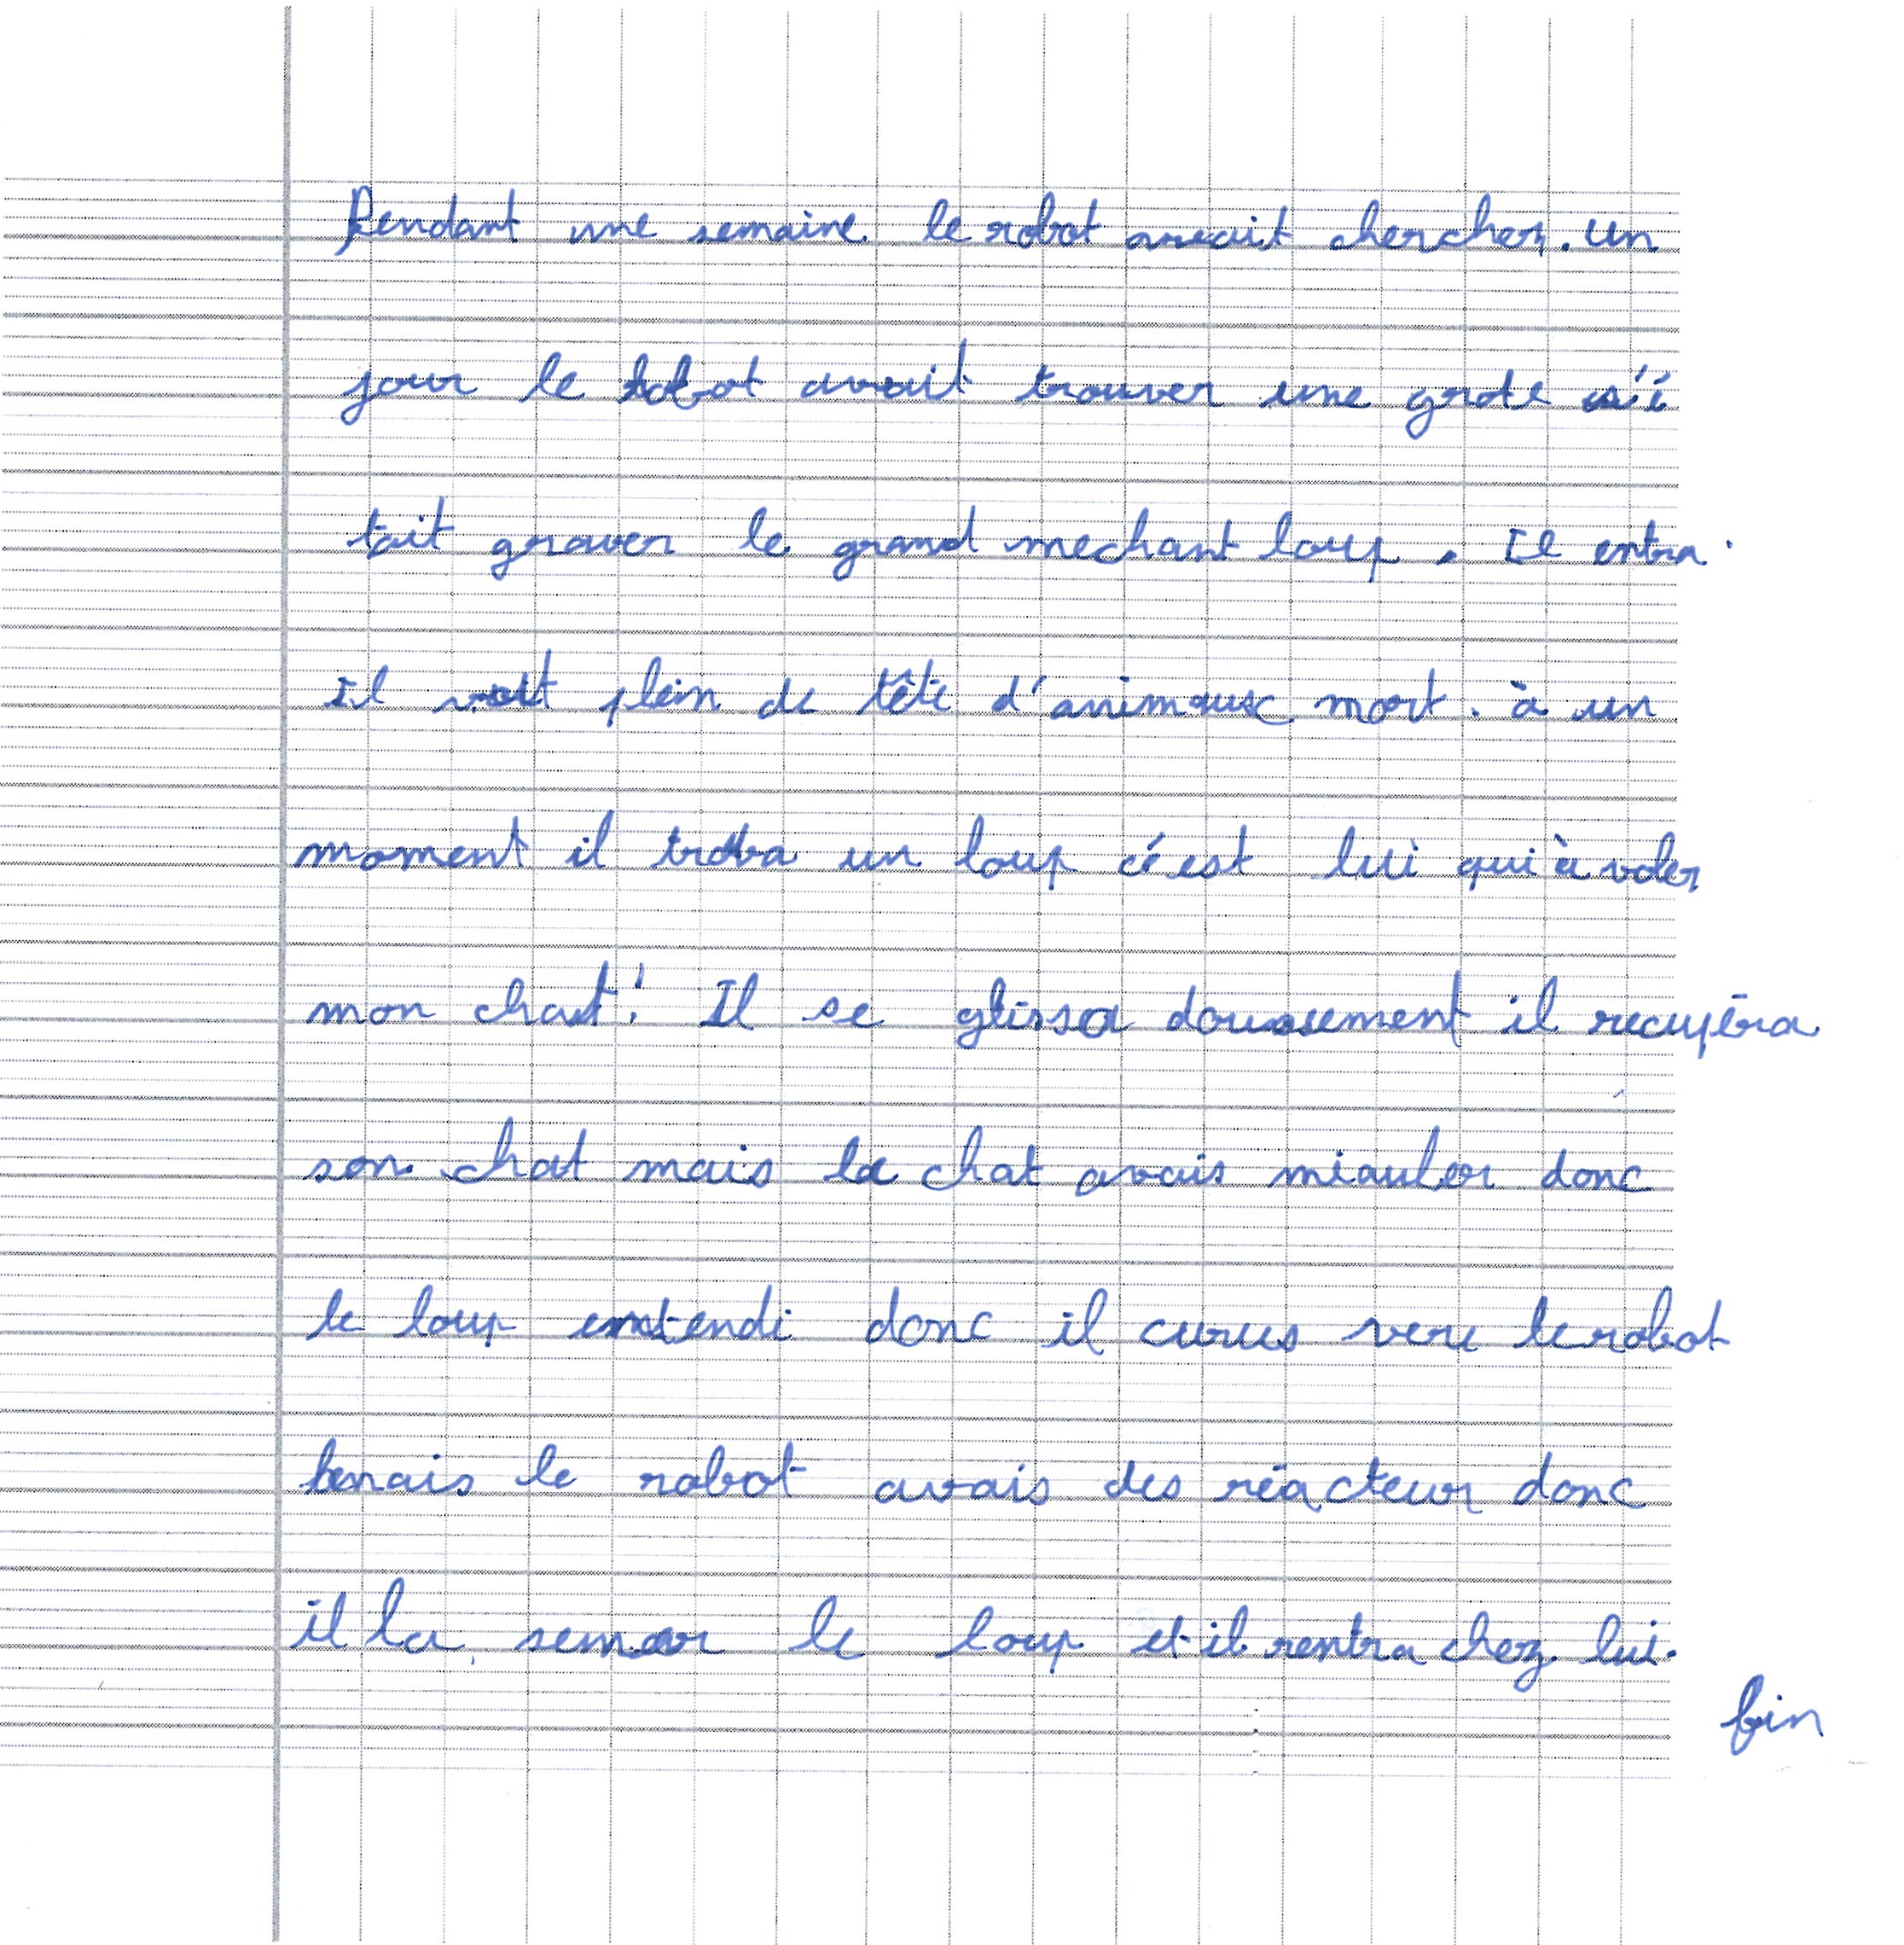 Pendant une semaine le robot avait chercher. un
jour le robot avait trouver une grote s'é
tait graver le grand mechant loup. Il entra.
Il voit plein de tête d'animaux mort. à un
moment il trova un loup cé est lui qui à voler
mon chat! Il se glissa doussement il recupéra
son chat mais le chat avais miauler donc
le loup entendi donc il curus vere le robot
mais le robot avais des réacteur donc
il la semer le loup et il rentra chez lui.
fin